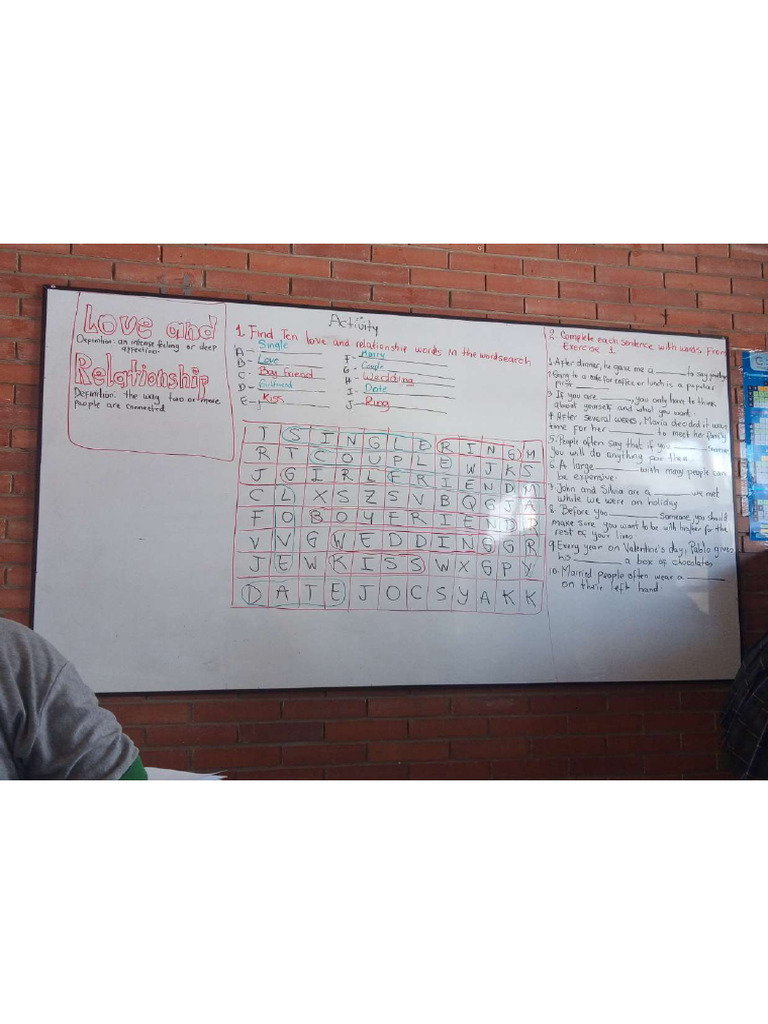 Love and
Definition: an intense feeling or deep
affection.
Relationship
Definition: the way two or more
people are connected
Activity
1. Find Ten love and relationship words in the wordsearch
A - Single
B - Love
C - Boy friend
D - Girlfriend
E - Kiss
F - Marry
G - Couple
H - Wedding
I - Date
J - Ring
T S I N G L E R I N G M
R T C O U P L E W J K S
J G I R L F R I E N D M
C L X S Z S V B Q G J A
F O B O Y F R I E N D R
V V G W E D D I N G G R
J E W K I S S W X G P Y
D A T E J O C S Y A K K
2. Complete each sentence with words From
Exercise 1
1. After dinner, he gave me a ______ to say goodbye
2. Going to a cafe for coffee or lunch is a popular
first ______
3. If you are ______, you only have to think
about yourself and what you want.
4. After several weeks, Maria decided it was
time for her ______ to meet her family
5. People often say that if you ______ someone
You will do anything for them
6. A large ______ with many people can
be expensive.
7. John and Silvia are a ______ we met
while we were on holiday
8. Before you ______ someone, you should
make sure you want to be with him/her for the
rest of your lives
9. Every year on Valentine's day, Pablo gives
his ______ a box of chocolates
10. Married people often wear a ______
on their left hand.